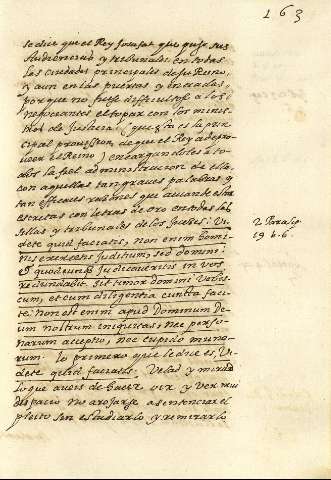 163
se dice que el Rey Josafat que puso sus
Audiencias y tribunales en todas
las ciudades principales de su Reino,
y aun en las puertas y entradas,
porque no fuese dificultoso a los
negociantes el topar con los minis
tros de Justicia (que esta es la prin
cipal provission de que el Rey a de pro
veer el Reino) encargandoles a to
dos la fiel administracion de ella,
con aquellas tan graves palabras y
tan eficaces razones que avian de estar
escritas con letras de oro en todas las
sillas y tribunales de los Jueses. Vi
dete quid faciatis, non enim homi
nis exercetis Juditium, sed domini
et quodcumque Judicaveritis in vos
redundabit. sit timor domini vobis
cum, et cum diligentia cuncta faci
te: non est enim apud Dominum De
um nostrum iniquitas; nec perso
narum acceptio, nec cupido mune
rum. lo primero que le dice es, Vi
dete quid faciatis. Velad y mirad
lo que aveis de haser oir y ver mui
despacio no arojarse a sentenciar el
pleito sin estudiarlo y remirarlo
2 Paralip.
19 v. 6.